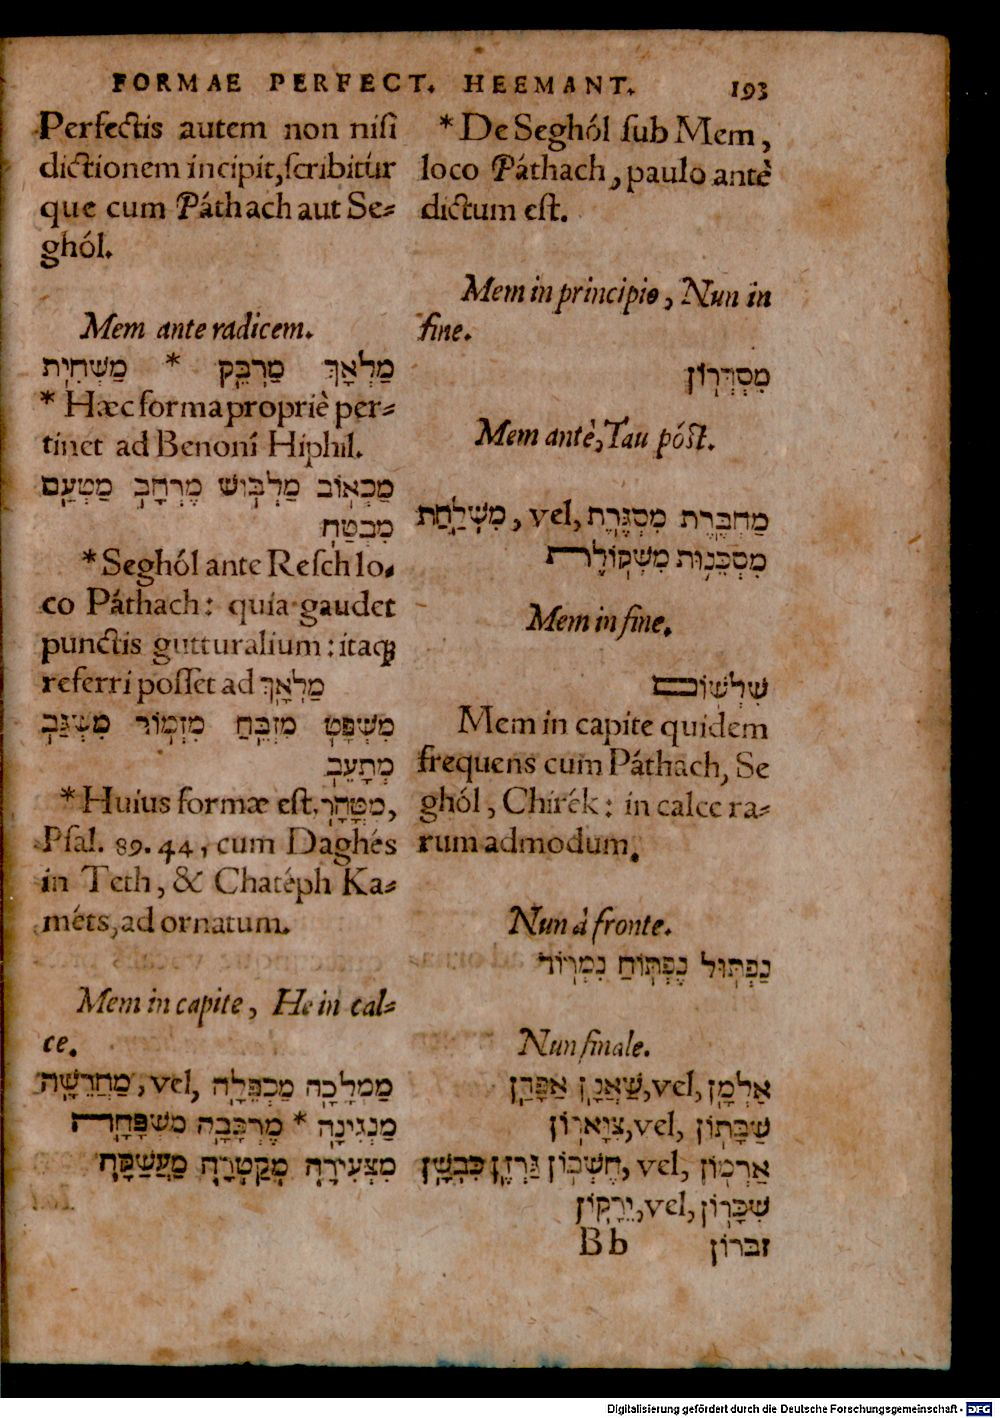 FORMAE PERFECT. HEEMANT. 193
Perfectis autem non nisi
dictionem incipit, scribitúr
que cum Páthach aut Se-
ghól.
Mem ante radicem.
מַלְאָךְ מַרְבֵּק * מַשְׁחִית
* Hæc forma propriè per-
tinet ad Benoní Hiphil.
מַכְאוֹב מַלְבּוּשׁ מֶרְחָב מַטְעַם
מִבְטַח
* Seghól ante Resch lo-
co Páthach: quia gaudet
punctis gutturalium: itaq
referri posset ad מַלְאָךְ
מִשְׁפָּט מִזְבֵּחַ מִזְמוֹר מִשְׂגַּב
מְתָעֵב
* Huius formæ est, מִטֳּהָר,
Psal. 89. 44, cum Daghés
in Teth, & Chatéph Ka-
méts, ad ornatum.
Mem in capite, He in cal-
ce.
מַמְלָכָה מַכְפֵּלָה vel, מַחֲרֵשָׁה,
מַנְגִּינָה * מֶרְכָּבָה מִשְׁפָּחָה
מִצְעִירָה מֻקְטָרָה
* De Seghól sub Mem,
loco Páthach, paulo antè
dictum est.
Mem in principio, Nun in
fine.
מִסְדְּרוֹן
Mem antè, Tau póst.
מַחְבֶּרֶת מִסְגֶּרֶת vel, מִשְׁלַחַת,
מִסְכֵּנוּת מִשְׁקוֹלֶת
Mem in fine.
שִׁלְשׁוֹם
Mem in capite quidem
frequens cum Páthach, Se
ghól, Chírék: in calce ra-
rum admodum.
Nun à fronte.
נַפְתּוּל נֶפְתּוֹחַ נִמְרוֹד
Nun finale.
אַלְמָן vel, שַׁאֲנָן אַפָּדֶן
שַׁבָּתוֹן vel, צִוָּארוֹן
אַרְמוֹן vel, חֶשְׁבּוֹן גַּרְזֶן כִּבְשָׁן
שִׁכָּרוֹן vel, יֵרָקוֹן
Bb זכרון
Digitalisierung gefördert durch die Deutsche Forschungsgemeinschaft - DFG